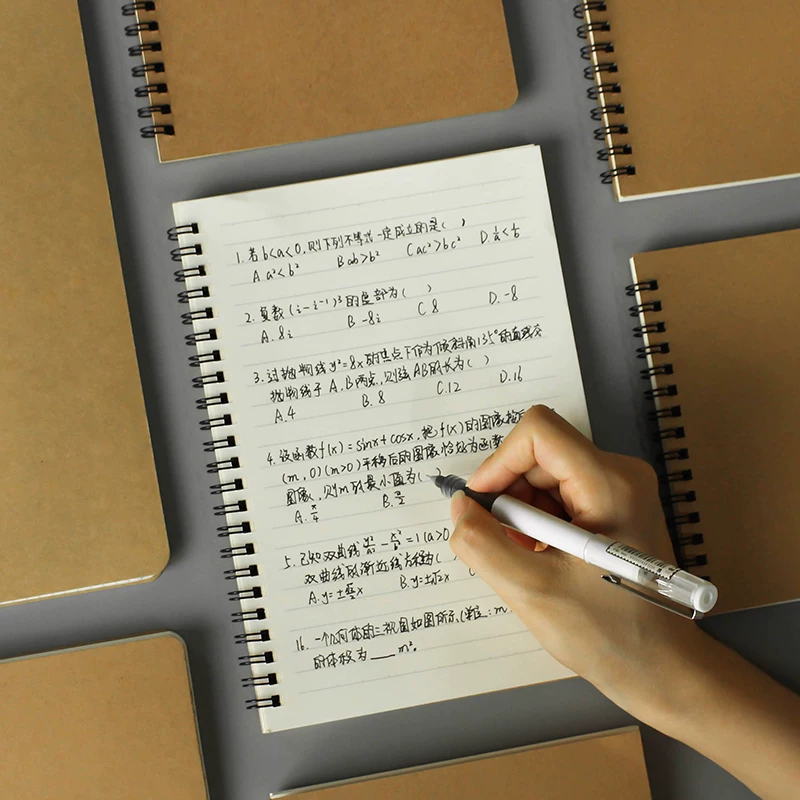 1. 若b<a<0,则下列不等式一定成立的是( )
A. a²<b² B ab>b² C ac²>bc² D. 1/a<1/b
2. 复数(i-i⁻¹)³的虚部为( )
A. 8i B -8i C 8 D. -8
3. 过抛物线y²=8x的焦点下作为倾斜角135°的直线交
抛物线于A、B两点,则弦AB的长为( )
A. 4 B. 8 C. 12 D. 16
4. 设函数f(x)=sinx+cosx,把f(x)的图像按
(m,0)(m>0)平移后的图像恰好为函数
图像,则m的最小值为(
A. π/4 B. π/2
5. 已知双曲线 -x²/b²=1(a>0
双曲线的渐近线方程为(
A. y=± x B. y=± x
16. 一个几何体的三视图如图所示(单位:m
的体积为___m².